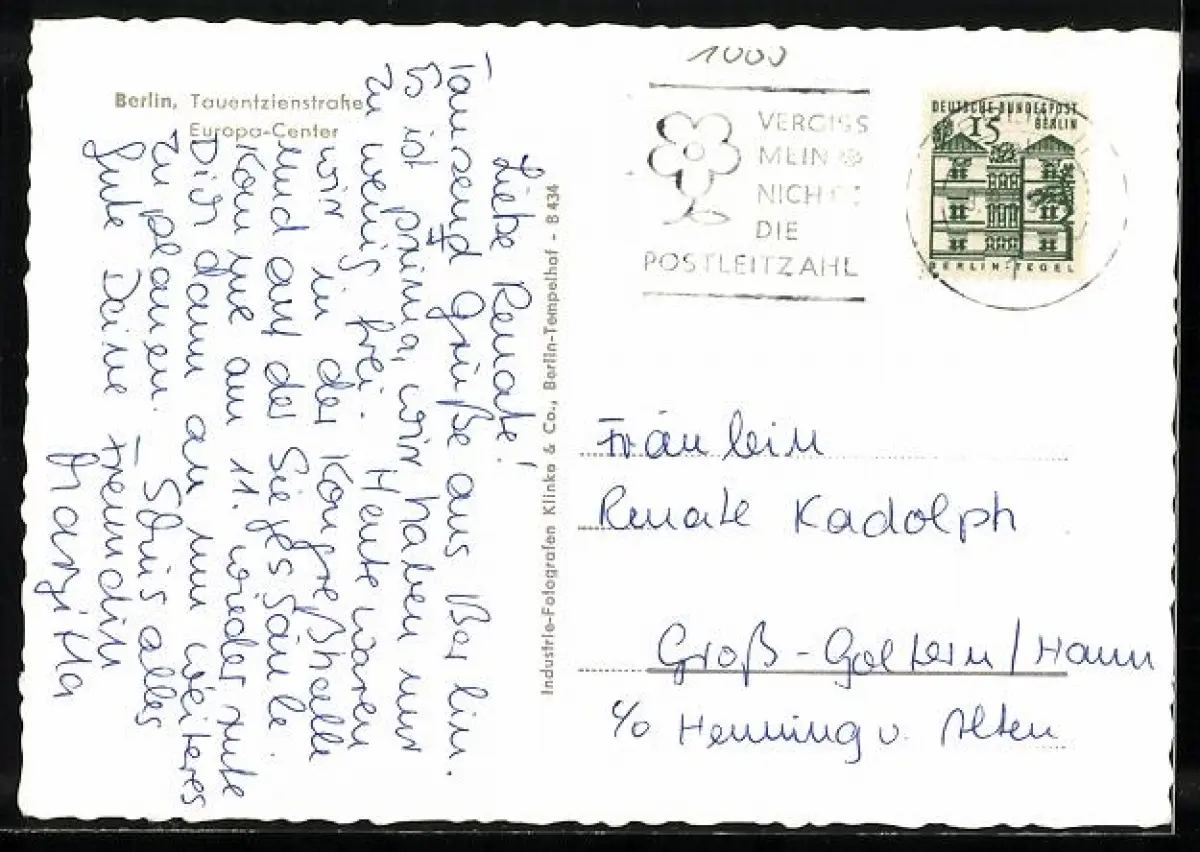 Berlin, Tauentzienstraße
Europa-Center
Liebe Renate!
Tausend Grüße aus Berlin.
Es ist prima, wir haben nur
zu wenig frei. Heute waren
wir in der Kongreßhalle
und auf der Siegessäule.
Komme am 11. wieder, rufe
Dich dann an um weiteres
zu planen. Tschüs alles
Gute Deine Freundin
Margitta
Industrie-Fotografen Klinke & Co., Berlin-Tempelhof - B 434
1000
VERGISS
MEIN
NICHT
DIE
POSTLEITZAHL
DEUTSCHE BUNDESPOST
BERLIN
15
BERLIN-TEGEL
Fräulein
Renate Kadolph
Groß-Goltern/Hann
c/o Henning v. Alten